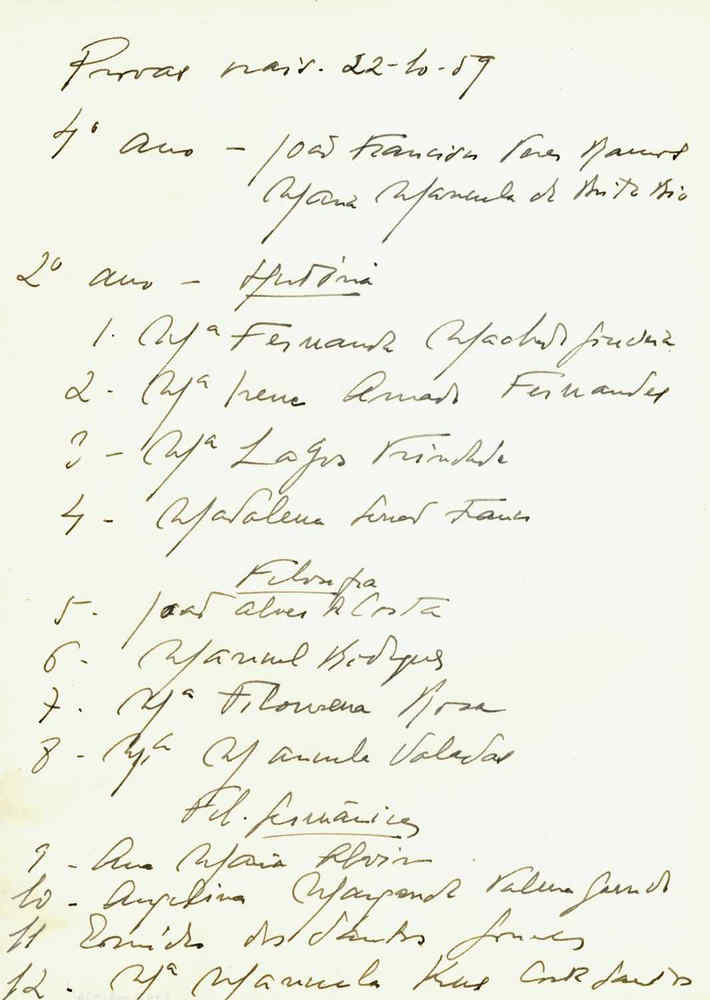 Provas orais. 22-10-59
4º ano - João Francisco Ramos
Maria Manuela de Brito Rio
2º ano - História
1. Mª Fernanda Machado
2 - Mª Irene Amado Fernandes
3 - Mª Lagos Trindade
4 - Madalena
Filosofia
5 - João Alves da Costa
6 - Manuel Rodrigues
7. Mª Filomena Rosa
8 - Mª Manuela Valadas
Fil. Germânicas
9 - Ana Maria
10 - Angelina Margarida
11 dos Santos Gomes
12. Mª Manuela Santos